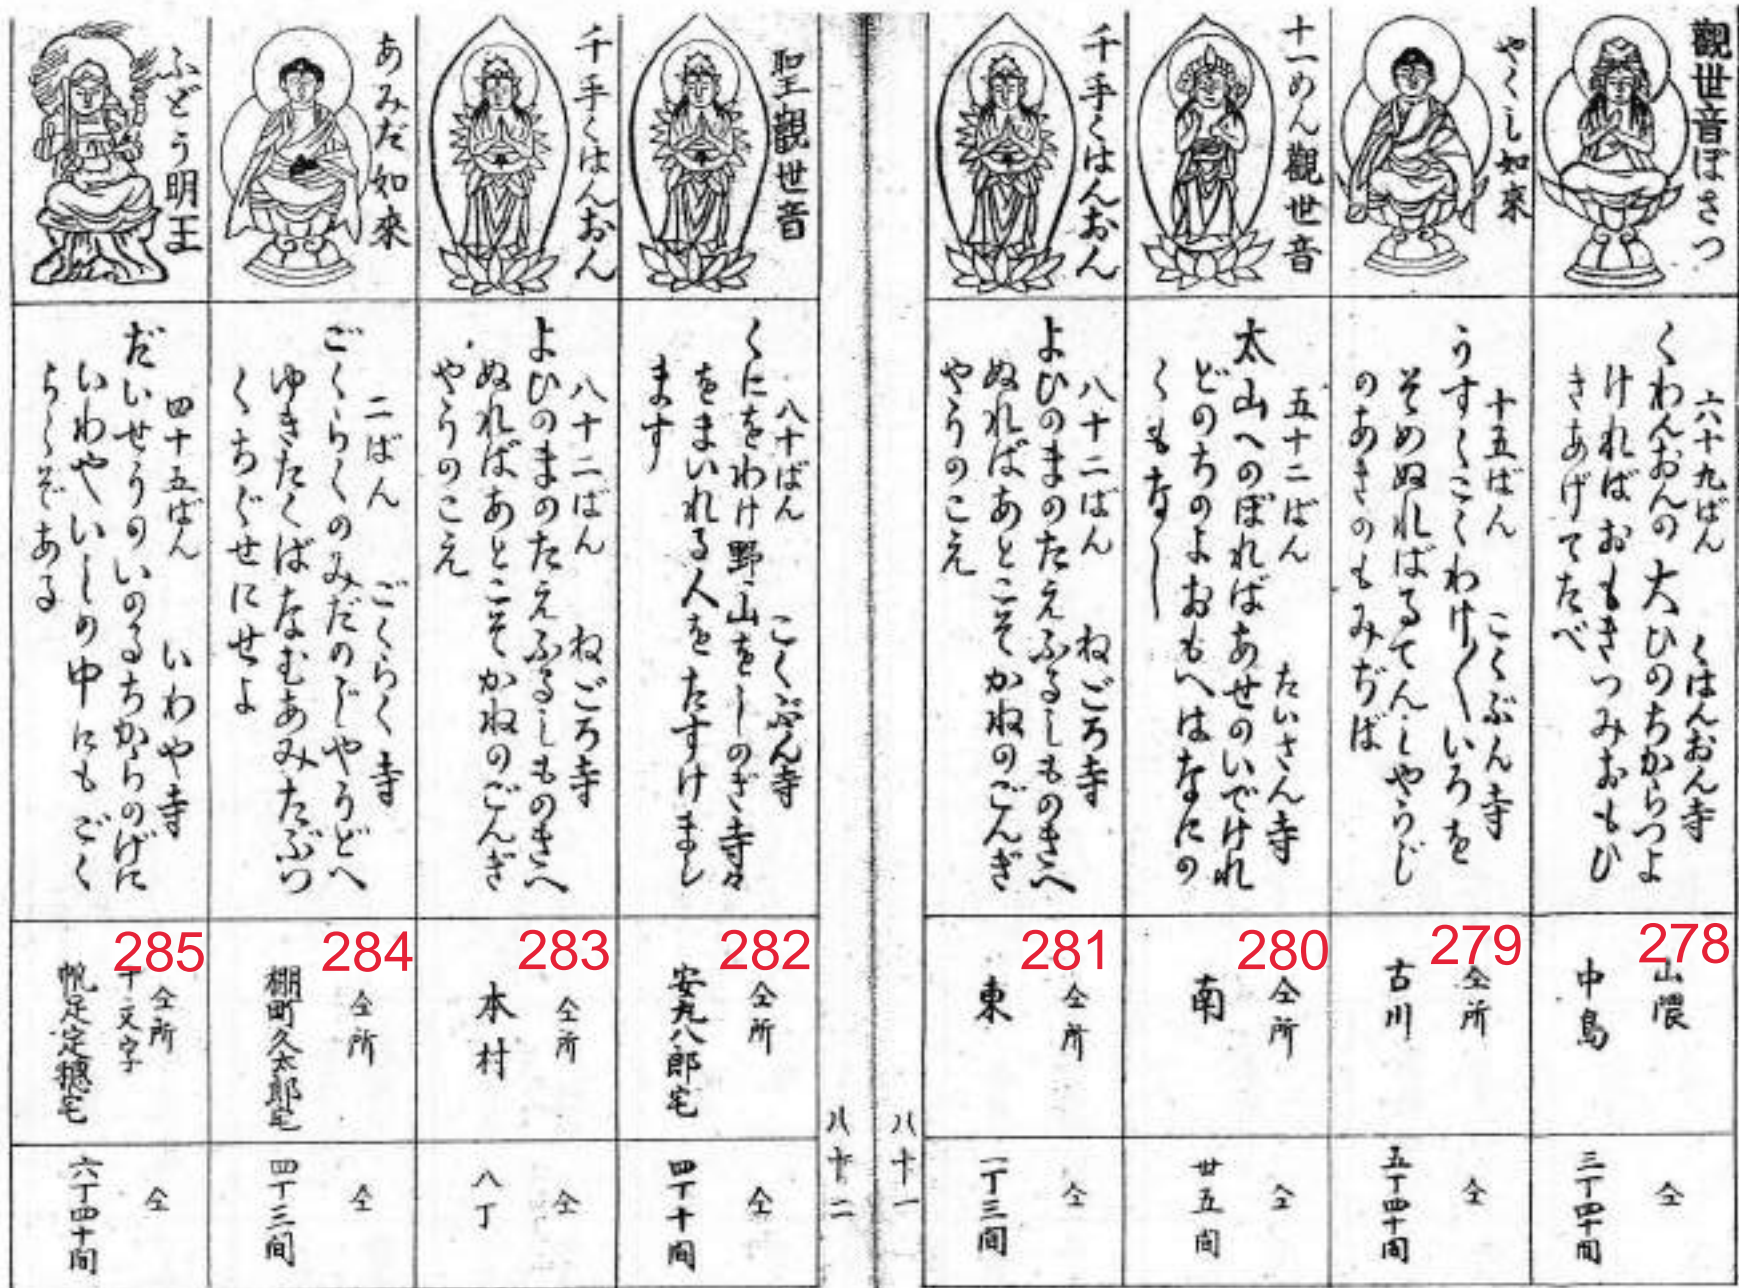 觀世音ぼさつ
六十九ばん　くはんおん寺
くわんおんの大ひのちからつよ
ければおもきつみおもひ
きあげてたべ
278
山隈
中島
仝
三丁四十間
やくし如來
十五ばん　こくぶん寺
うすくこくわけ〱いろを
そめぬればるてんしやうじ
のあきのもみぢば
279
仝所
古川
仝
五丁四十間
十一めん觀世音
五十二ばん　たいさん寺
太山へのぼればあせのいでけれ
どのちのよおもへはなにの
くもなし
280
仝所
南
仝
廿五間
千手くはんおん
八十二ばん　ねごろ寺
よひのまのたえふるしものきへ
ぬればあとこそかねのごんぎ
やうのこえ
281
仝所
東
仝
一丁三間
八十一
八十二
聖觀世音
八十ばん　こくぶん寺
くにをわけ野山をしのぎ寺々
をまいれる人をたすけまし
ます
282
仝所
安丸八郎宅
仝
四丁十間
千手くはんおん
八十二ばん　ねごろ寺
よひのまのたえふるしものきへ
ぬればあとこそかねのごんぎ
やうのこえ
283
仝所
本村
仝
八丁
あみだ如來
二ばん　ごくらく寺
ごくらくのみだのじやうどへ
ゆきたくばなむあみたぶつ
くちぐせにせよ
284
仝所
棚町久太郎宅
仝
四丁三間
ふどう明王
四十五ばん　いわや寺
だいせうのいのるちからのげに
いわやいしの中にもごく
らくぞある
285
仝所
十文字
帆足定穗宅
仝
六丁四十間